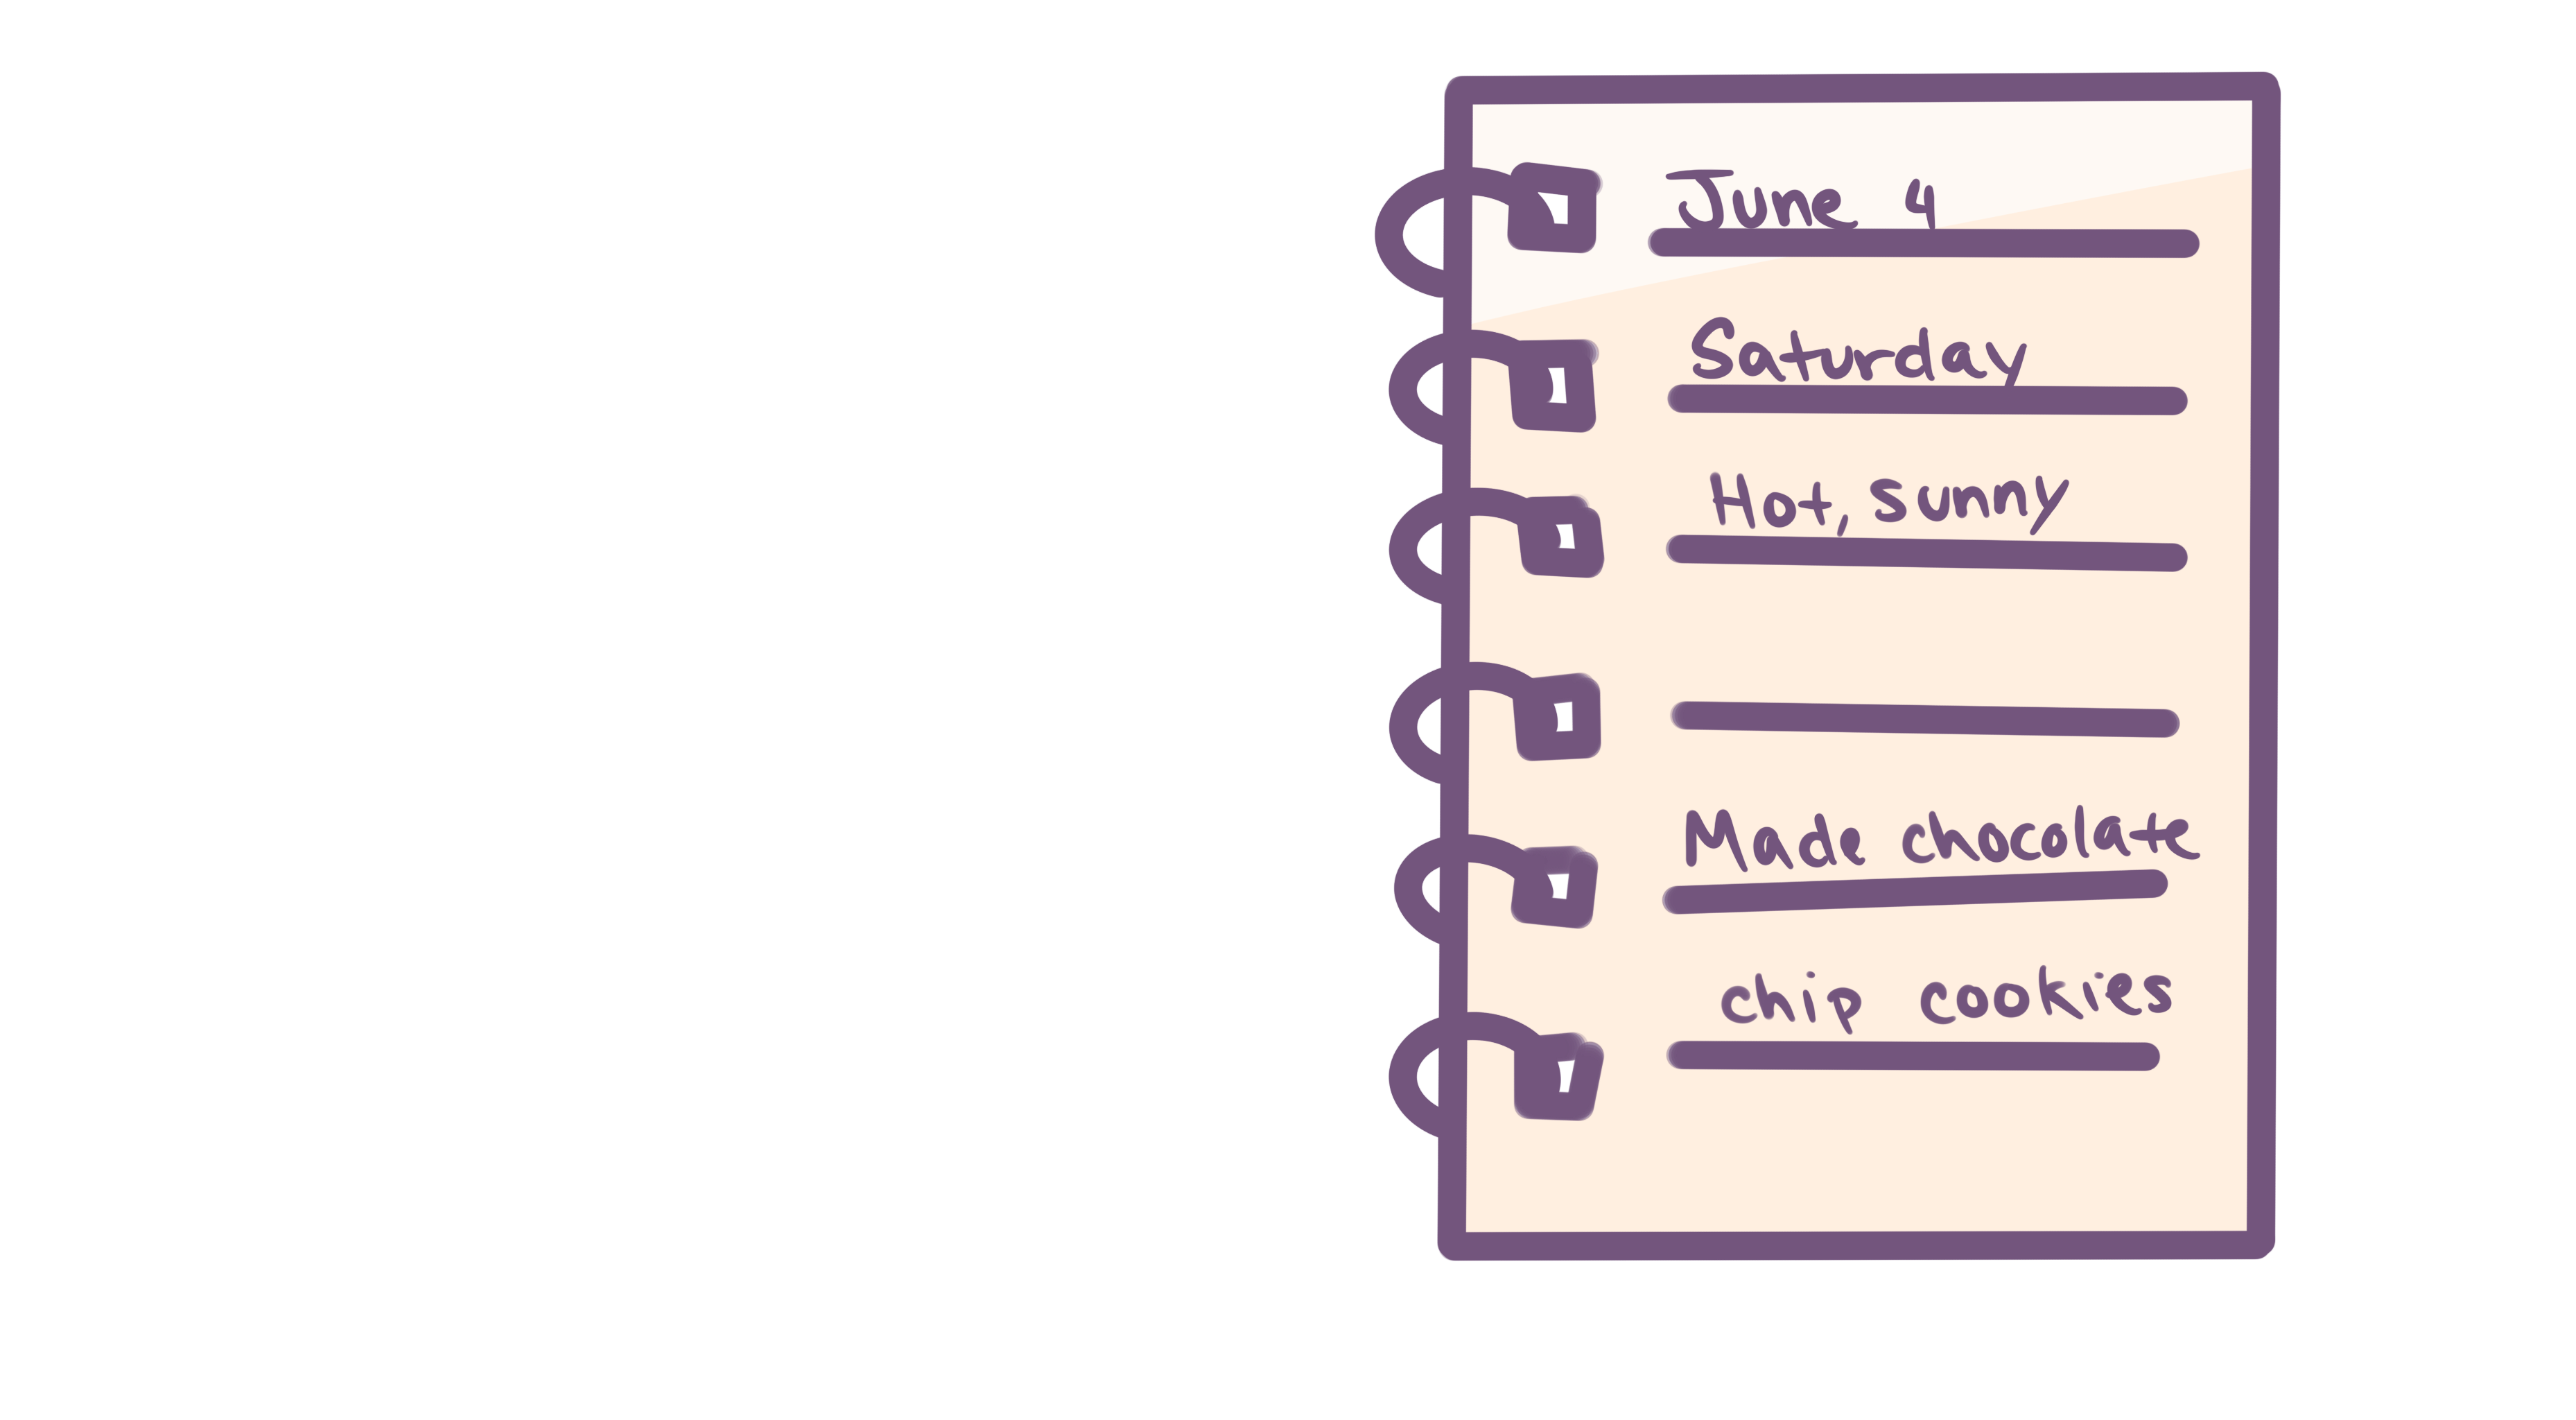 June 4
Saturday
Hot, sunny
Made chocolate
chip cookies